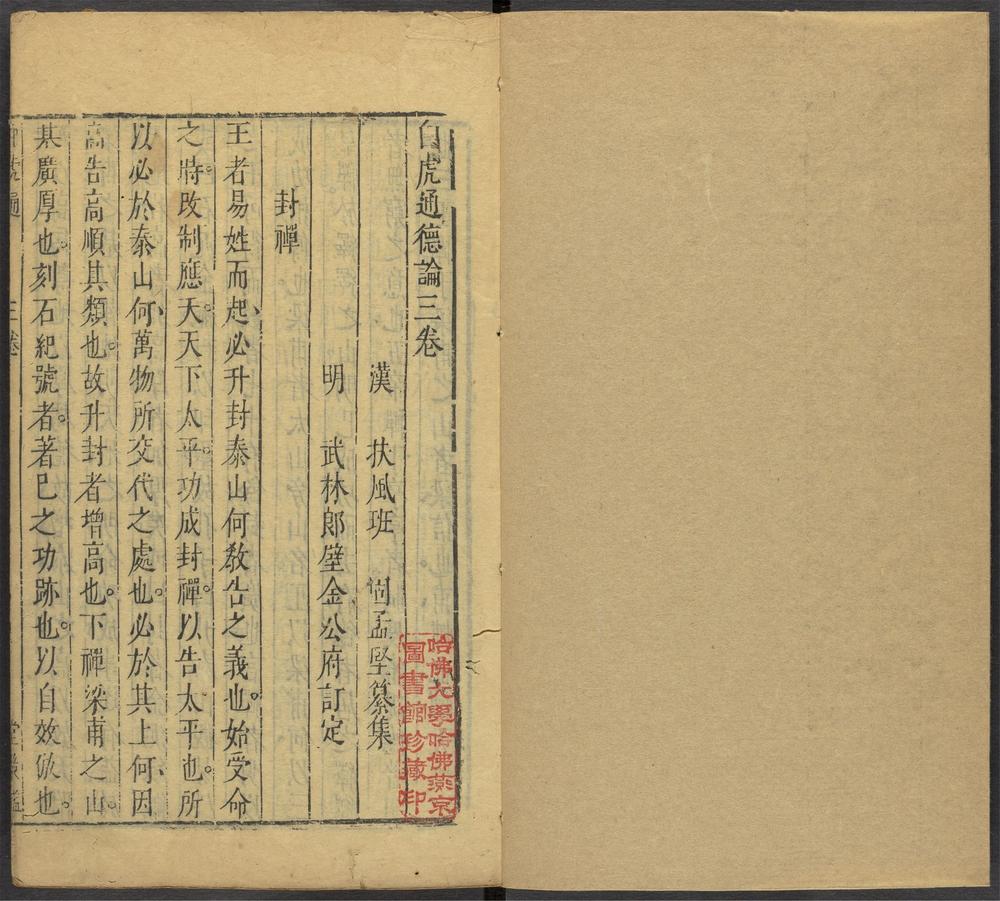 白虎通德論三卷
漢 扶風班 固孟堅纂集
明 武林郎璧金公府訂定
封禪
王者易姓而起、必升封泰山何教告之義也。始受命
之時。改制應天。天下太平。功成封禪。以告太平也。所
以必於泰山何、萬物所交代之處也。必於其上何、因
高告高順其類也。故升封者增高也。下禪梁甫之山。
基廣厚也。刻石紀號者。著己之功跡也。以自效倣也。
白虎通
三卷
堂策檻
哈佛大學哈佛燕京
圖書館珍藏印